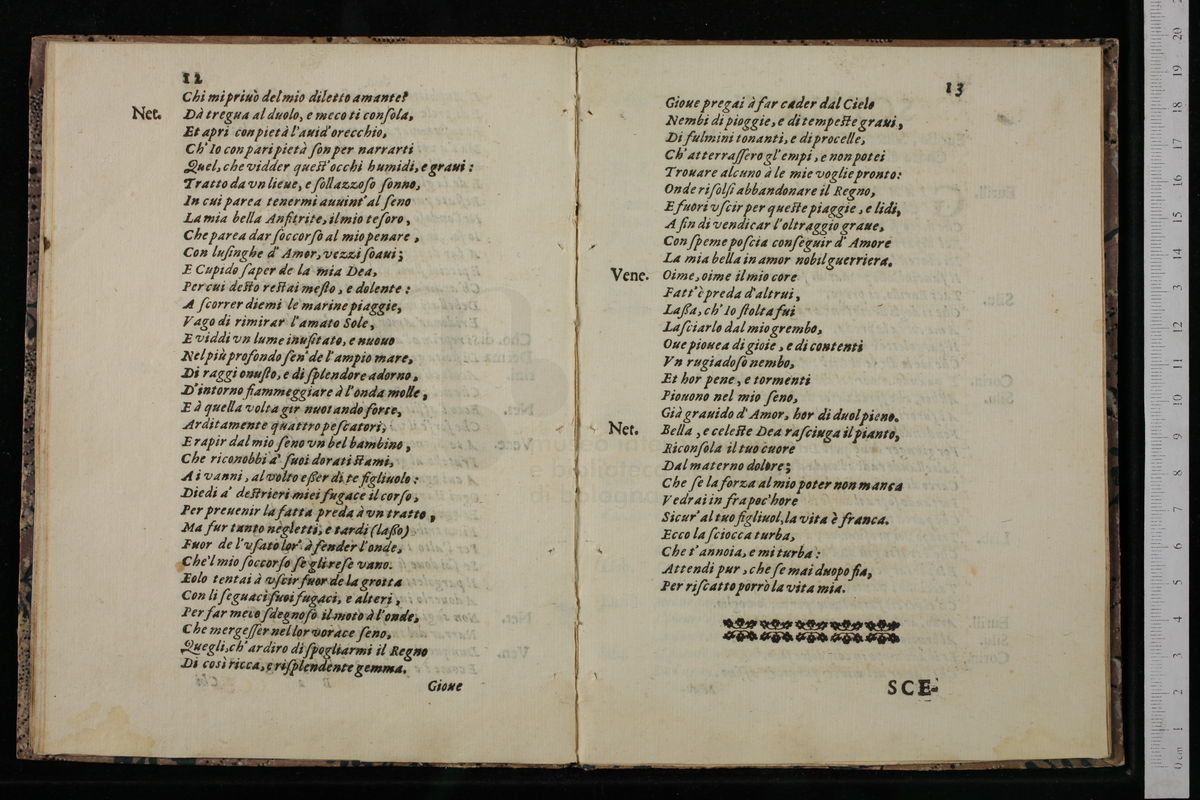 12
Chi mi priuò del mio diletto amante?
Net. Dà tregua al duolo, e meco ti consola,
Et apri con pietà l'auid'orecchio,
Ch'Io con pari pietà son per narrarti
Quel, che vidder quest'occhi humidi, e graui:
Tratto da vn lieue, e sollazzoso sonno,
In cui parea tenermi auuint'al seno
La mia bella Anfitrite, il mio tesoro,
Che parea dar soccorso al mio penare,
Con lusinghe d'Amor, vezzi soaui;
E Cupido saper de la mia Dea,
Per cui desto restai mesto, e dolente:
A scorrer diemi le marine piaggie,
Vago di rimirar l'amato Sole,
E viddi vn lume inusitato, e nuouo
Nel più profondo sen' de l'ampio mare,
Di raggi onusto, e di splendore adorno,
D'intorno fiammeggiare à l'onda molle,
E à quella volta gir nuotando forte,
Arditamente quattro pescatori,
E rapir dal mio seno vn bel bambino,
Che riconobbi a' suoi dorati stami,
A i vanni, al volto esser di te figliuolo:
Diedi a' destrieri miei fugace il corso,
Per preuenir la fatta preda à vn tratto,
Ma fur tanto negletti, e tardi (lasso)
Fuor de l'vsato lor' à fender l'onde,
Che'l mio soccorso se gli rese vano.
Eolo tentai à vscir fuor de la grotta
Con li seguaci suoi fugaci, e alteri,
Per far meco sdegnoso il moto à l'onde,
Che mergesser nel lor vorace seno,
Quegli, ch'ardiro di spogliarmi il Regno
Di così ricca, e risplendente gemma.
Gioue
13
Gioue pregai à far cader dal Cielo
Nembi di pioggie, e di tempeste graui,
Di fulmini tonanti, e di procelle,
Ch'atterrassero gl'empi, e non potei
Trouare alcuno à le mie voglie pronto:
Onde risolsi abbandonare il Regno,
E fuori vscir per queste piaggie, e lidi,
A fin di vendicar l'oltraggio graue,
Con speme poscia conseguir d'Amore
La mia bella in amor nobil guerriera.
Vene. Oime, oime il mio core
Fatt'è preda d'altrui,
Lassa, ch'Io stolta fui
Lasciarlo dal mio grembo,
Oue piouea di gioie, e di contenti
Vn rugiadoso nembo,
Et hor pene, e tormenti
Piouono nel mio seno,
Già grauido d'Amor, hor di duol pieno.
Net. Bella, e celeste Dea rasciuga il pianto,
Riconsola il tuo cuore
Dal materno dolore;
Che se la forza al mio poter non manca
Vedrai in fra poc'hore
Sicur'al tuo figliuol, la vita è franca.
Ecco la sciocca turba,
Che t'annoia, e mi turba:
Attendi pur, che se mai duopo fia,
Per riscatto porrò la vita mia.
SCE-